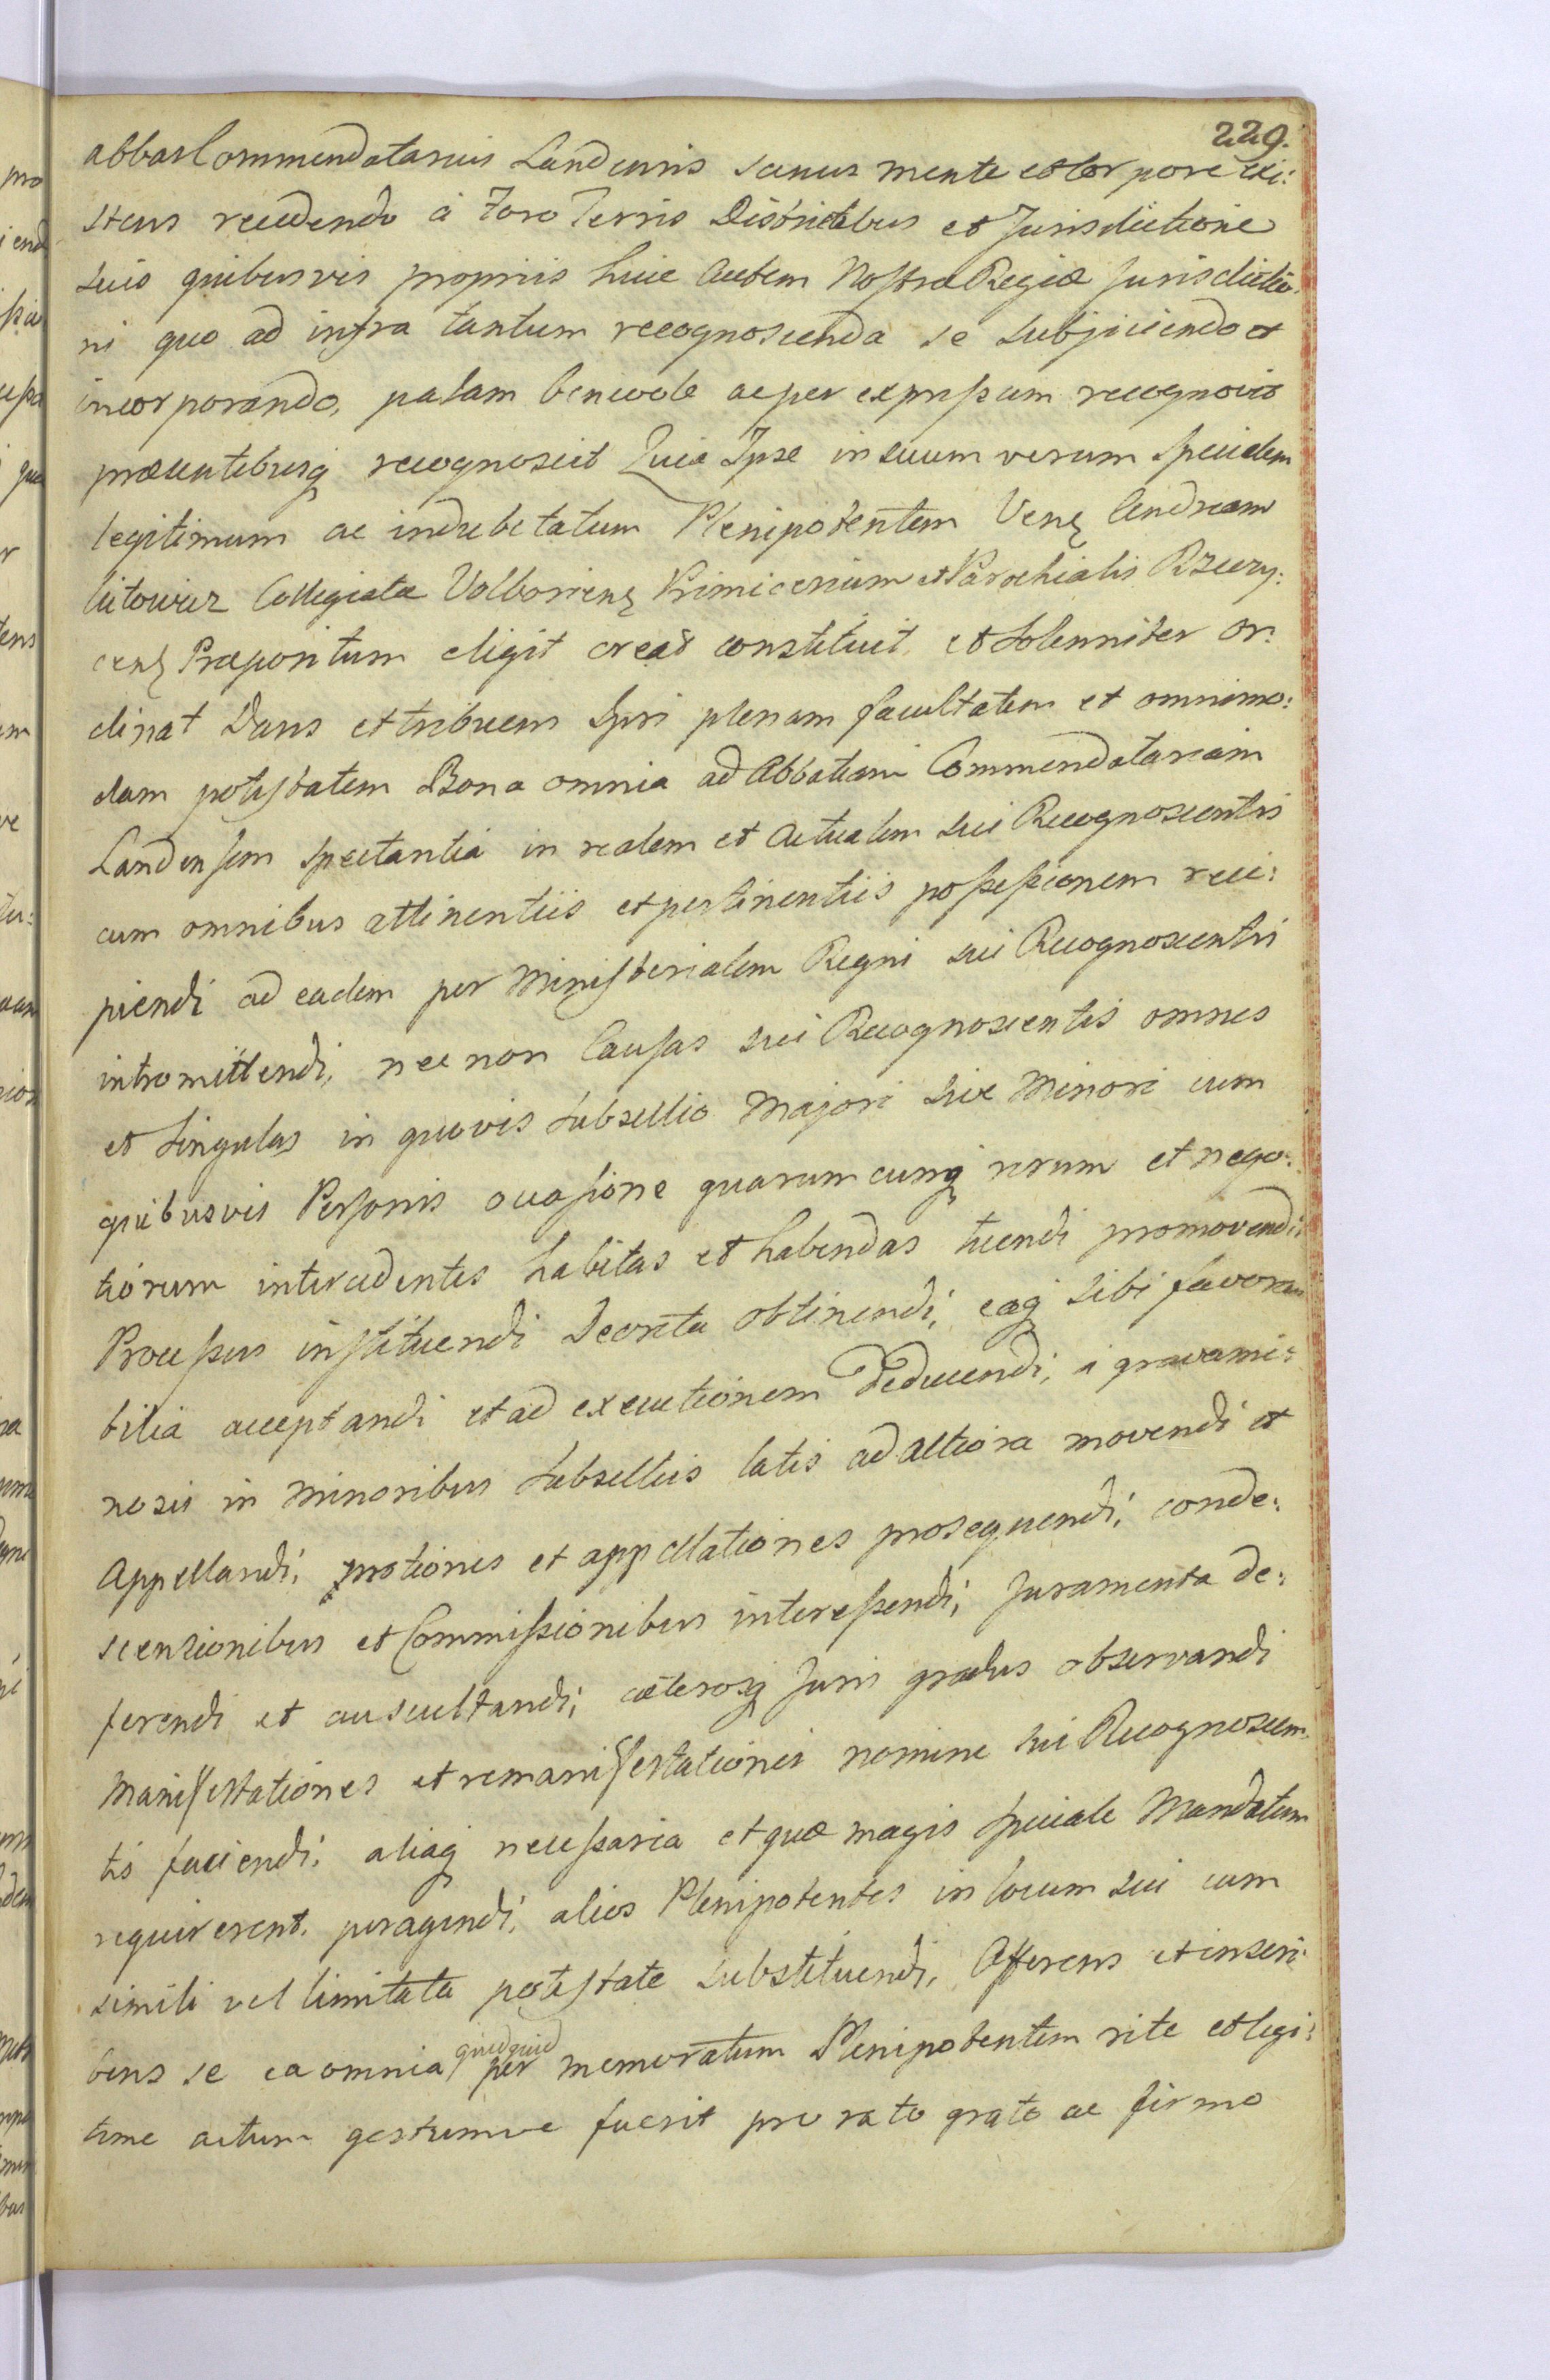 229.
abbas Commendatarius Landensis sanus mente et corpore exi:
stens recedendo à Foro Terris Districtibus et Jurisdictione
suis quibusvis propriis huic autem Nostræ Regiæ Jurisdictio:
ni quo ad infra tantum recognoscenda se subjiciendo et
incorporando, palam benevole ac per expressum recognovit
præsentibusq recognoscit Quia Ipse in suum verum specialem
legitimum ac indubitatum Plenipotentem Venę Andream
Collegiatæ Volborienę Primicerium et Parochialis
cenę Præpositum eligit creat constituit et solenniter or:
dinat Dans et tribuens Ipsi plenam facultatem et omnimo:
dam potestatem Bona omnia ad Abbatiam Commendatariam
Landensem spectantia in realem et actualem sui Recognoscentis
cum omnibus attinentiis et pertinentiis possessionem reci:
piendi ad eadem per Ministerialem Regni sui Recognoscentis
intromittendi, nec non Causas sui Recognoscentis omnes
et singulas in quovis subsellio Majori sive Minori cum
quibusvis Personis occasione quarumcunq rerum et nego:
tiorum intercedentes habitas et habendas tuendi promovendi:
Processus instituendi Decreta obtinendi, eaq sibi favora
bilia acceptandi et ad executionem deducendi, a gravami:
nosis in minoribus subselliis latis ad altiora movendi et
Appellandi, motiones et appellationes prosequendi, conde:
scensionibus et Commissionibus interessendi, Juramenta de:
ferendi et auscultandi, cæterosq Juris gradus observandi
Manifestationes et remanifestationes nomine sui Recognoscen:
tis faciendi, aliaq necessaria et quæ magis speciale Mandatum
requirerent. peragendi, alios Plenipotentes in locum sui cum
simili vel limitata potestate substituendi, Afferens et inscri:
bens se ea omnia quidquid per memoratum Plenipotentem rite et legi:
time actum gestumve fuerit pro rato grato ac firmo